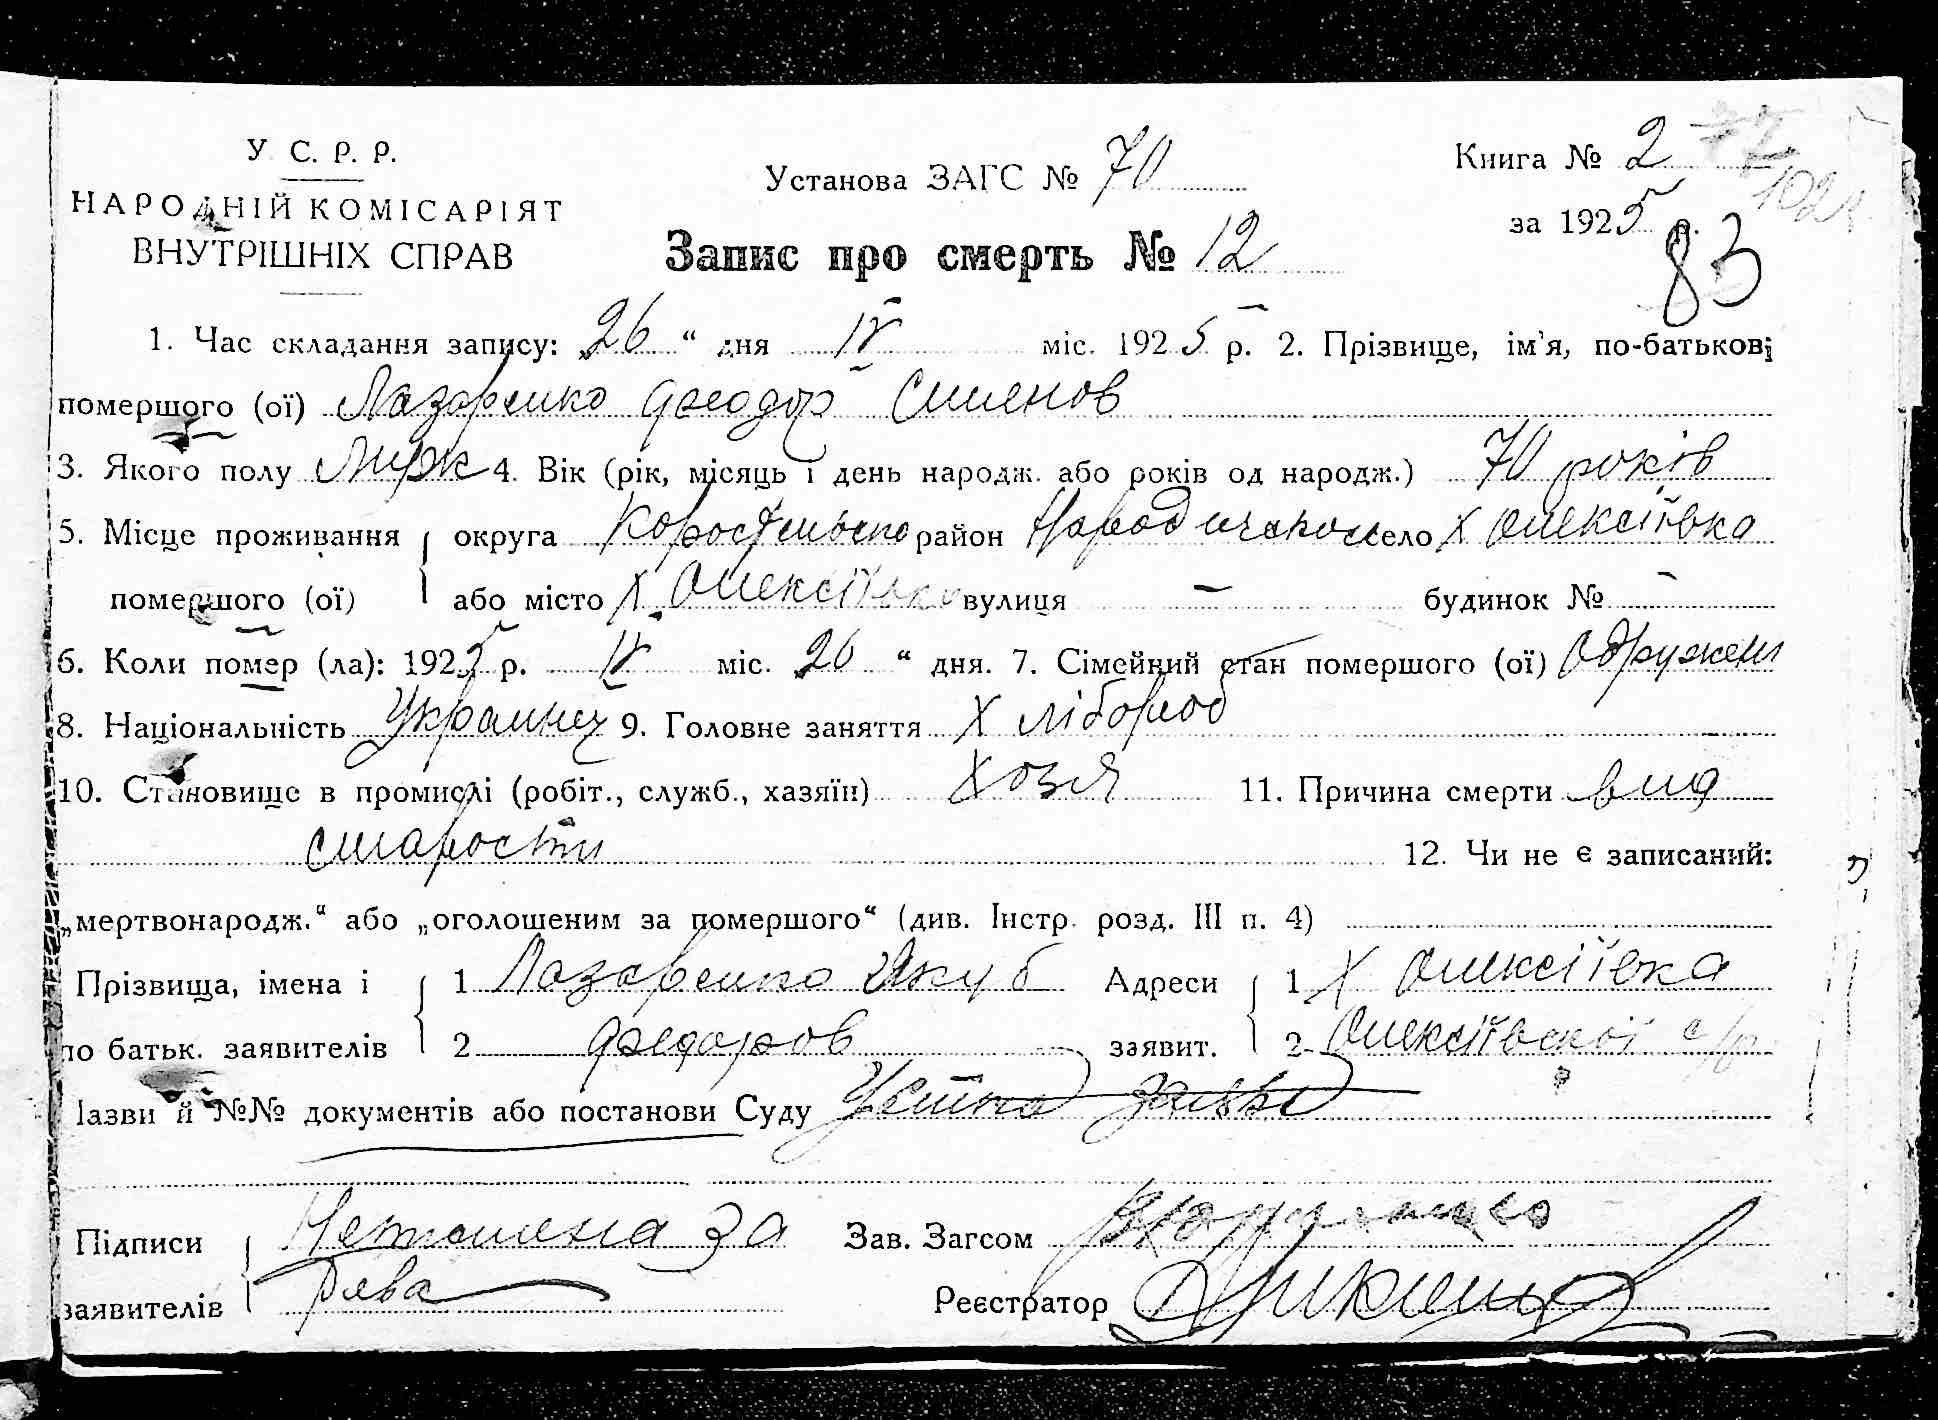 У. С. Р. Р.
НАРОДНІЙ КОМІСАРІЯТ
ВНУТРІШНІХ СПРАВ
Установа ЗАГС № 70
Запис про смерть № 12
Книга № 2
за 1925 р.
83
1. Час складання запису: „26“ дня IV міс. 1925 р. 2. Прізвище, ім'я, по-батькові
помершого (ої) Лазаренко Феодор Сименов
3. Якого полу Муж 4. Вік (рік, місяць і день народж. або років од народж.) 70 років
5. Місце проживання округа Коростенько район Народицько село Х Олексіївка
помершого (ої) або місто Х Олексіївка вулиця — будинок № —
6. Коли помер (ла): 1925 р. IV міс. 26 “ дня. 7. Сімейний стан помершого (ої) Одружен
8. Національність Украинец 9. Головне заняття Хлібороб
10. Становище в промислі (робіт., служб., хазяїн) Хозя 11. Причина смерти вид
старости 12. Чи не є записаний:
„мертвонародж.“ або „оголошеним за помершого“ (див. Інстр. розд. III п. 4)
Прізвища, імена і 1 Лазаренко Якуб Адреси 1 Х Олексіївка
по батьк. заявителів 2 Федоров заявит. 2 Олексіївскої с/р
Назви й №№ документів або постанови Суду Устна заява
Підписи Неписмена За Зав. Загсом
заявителів Рева Реєстратор